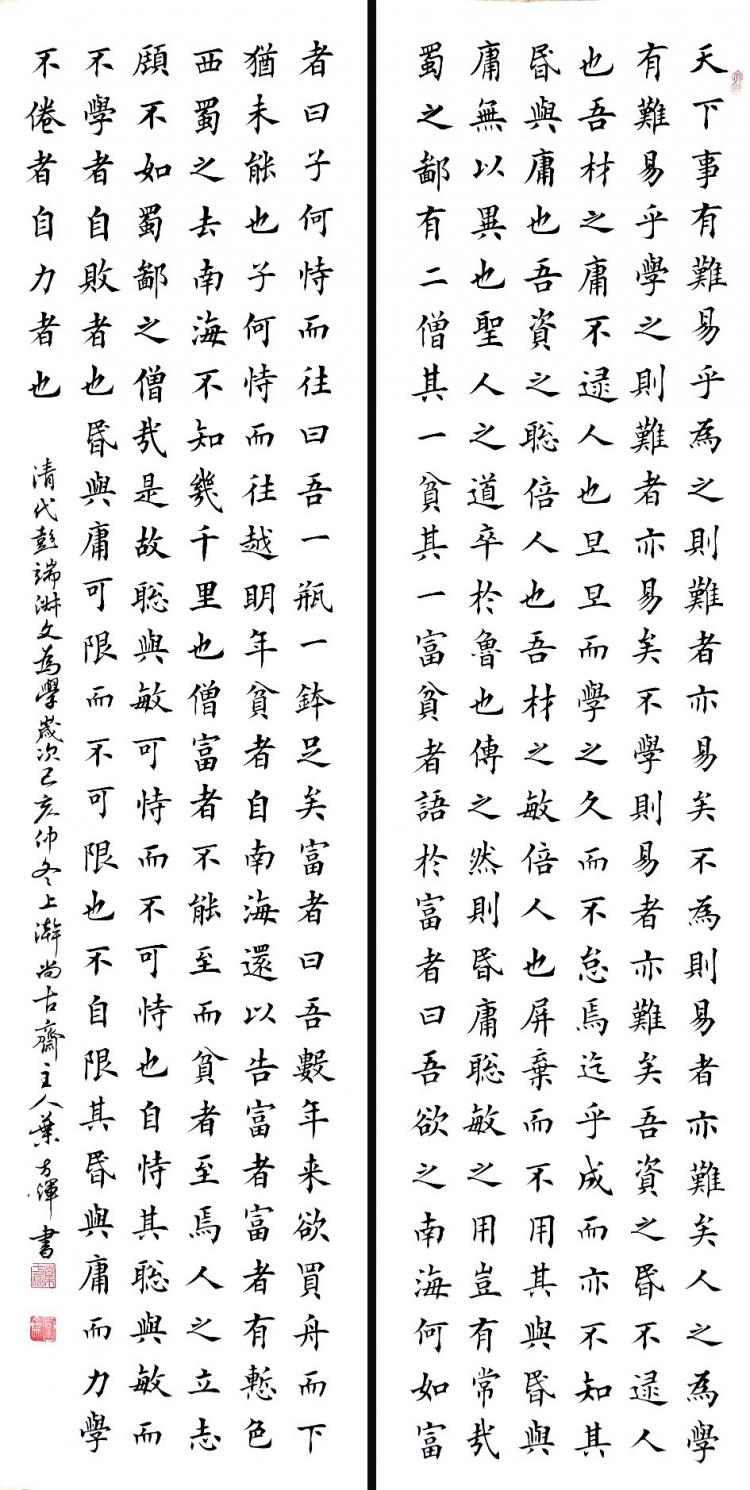 天下事有難易乎為之則難者亦易矣不為則易者亦難矣人之為學
有難易乎學之則難者亦易矣不學則易者亦難矣吾資之昬不逮人
也吾材之庸不逮人也旦旦而學之久而不怠焉迄乎成而亦不知其
昬與庸也吾資之聡倍人也吾材之敏倍人也屏棄而不用其與昬與
庸無以異也聖人之道卒於魯也傳之然則昬庸聡敏之用豈有常哉
蜀之鄙有二僧其一貧其一富貧者語於富者曰吾欲之南海何如富
者曰子何恃而往曰吾一瓶一鉢足矣富者曰吾數年来欲買舟而下
猶未能也子何恃而往越明年貧者自南海還以告富者富者有慙色
西蜀之去南海不知幾千里也僧富者不能至而貧者至焉人之立志
顧不如蜀鄙之僧哉是故聡與敏可恃而不可恃也自恃其聡與敏而
不學者自敗者也昬與庸可限而不可限也不自限其昬與庸而力學
不倦者自力者也
清代彭端淑文為學歲次己亥仲冬上澣尚古齋主人葉書